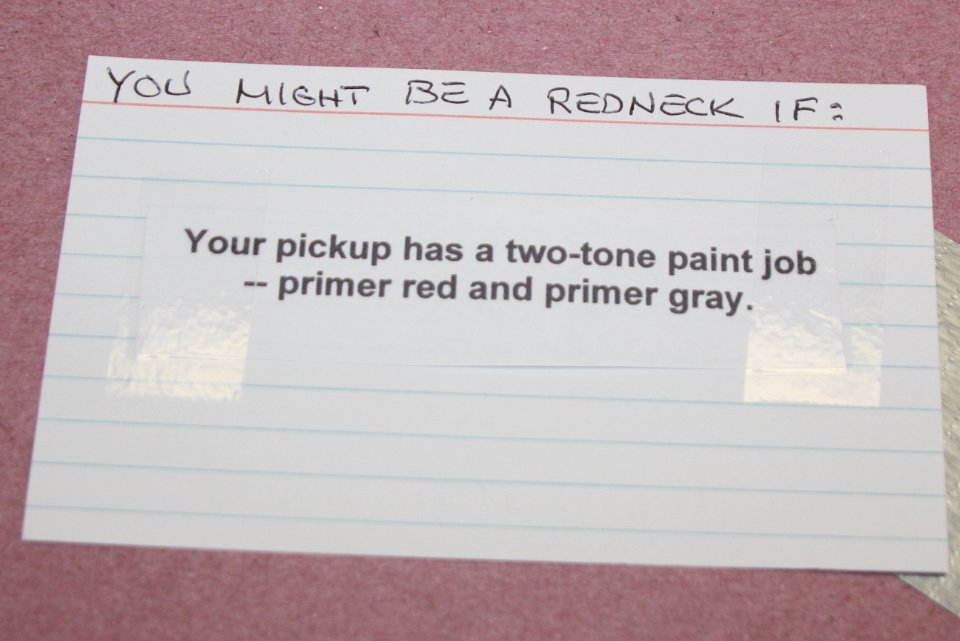 YOU MIGHT BE A REDNECK IF:
Your pickup has a two-tone paint job
-- primer red and primer gray.